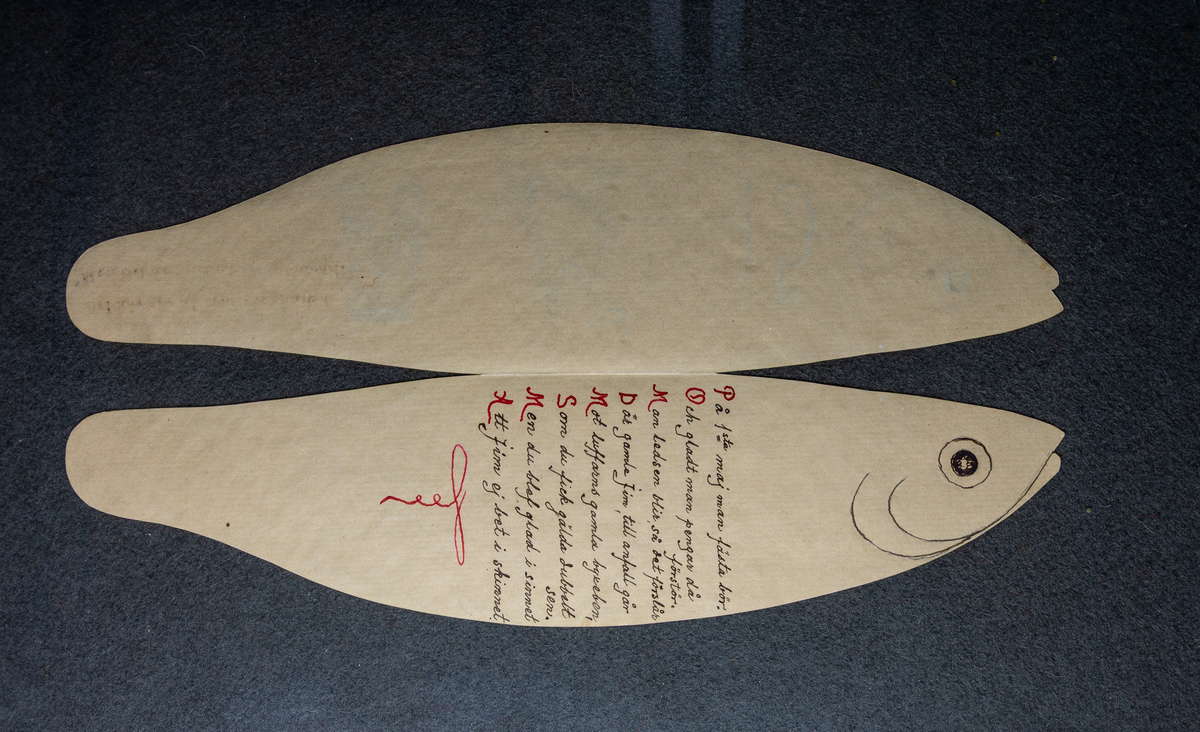 På 1sta maj man fästa bör.
Och gladt man pengar då
förstör.
Man ledsen blir så det förslår
Då gamle Jim, till anfall går
Mot luffarns gamla byxeben,
Som du fick gälda dubbelt
sen.
Men du blef glad i sinnet
Att Jim ej bet i skinnet.